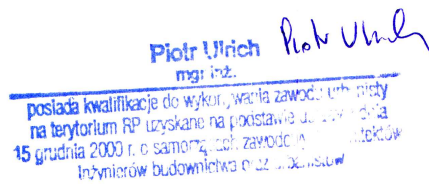 Piotr Ulrich Piotr Ulrich
mgr inż.
posiada kwalifikacje do wykonywania zawodu urbanisty
na terytorium RP uzyskane na podstawie dnia
15 grudnia 2000 r. o samorządach zawodowych architektów
inżynierów budownictwa oraz urbanistów